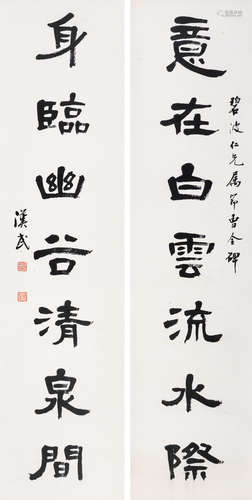 碧波仁兄属节曹全碑
意在白雲流水際
身臨幽谷清泉間
漢民